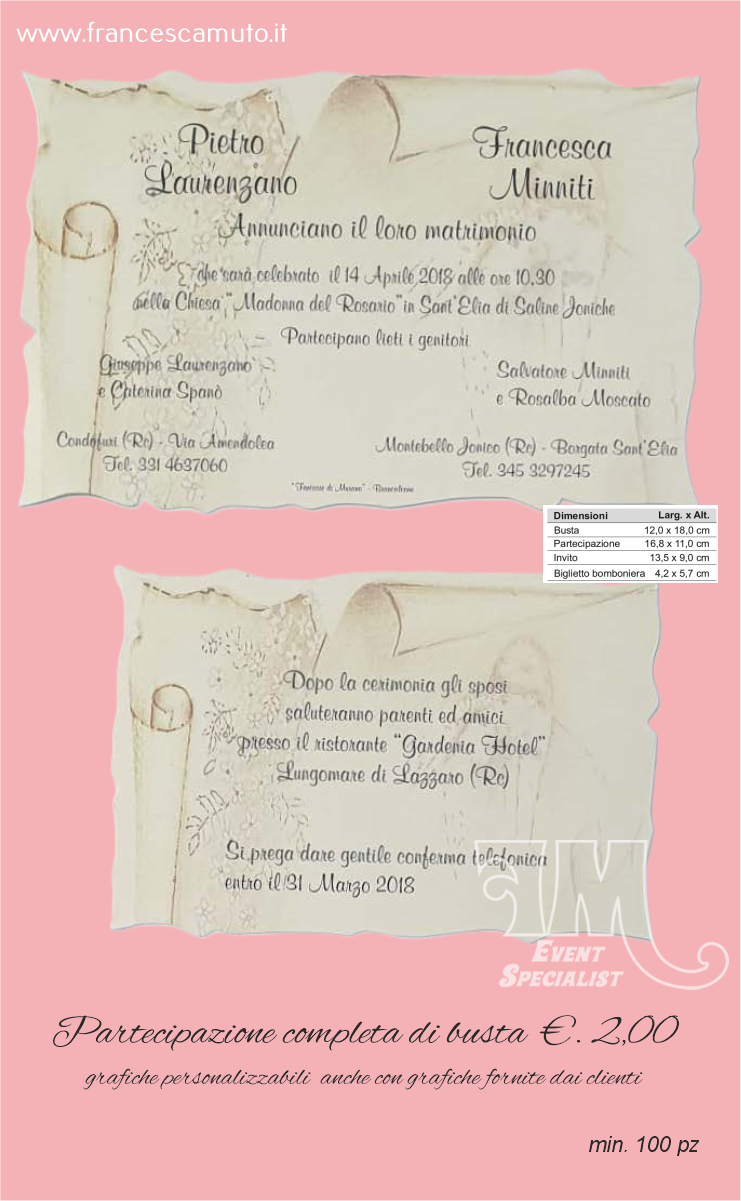 www.francescamuto.it
Pietro Laurenzano
Francesca Minniti
Annunciano il loro matrimonio
che sarà celebrato il 14 Aprile 2018 alle ore 10.30
nella Chiesa "Madonna del Rosario" in Sant'Elia di Saline Joniche
Partecipano lieti i genitori
Giuseppe Laurenzano
e Caterina Spanò
Salvatore Minniti
e Rosalba Moscato
Condofuri (Rc) - Via Amendolea
Tel. 331 4637060
Montebello Jonico (Rc) - Borgata Sant'Elia
Tel. 345 3297245
Dimensioni Larg. x Alt.
Busta 12,0 x 18,0 cm
Partecipazione 16,8 x 11,0 cm
Invito 13,5 x 9,0 cm
Biglietto bomboniera 4,2 x 5,7 cm
Dopo la cerimonia gli sposi
saluteranno parenti ed amici
presso il ristorante "Gardenia Hotel"
Lungomare di Lazzaro (Rc)
Si prega dare gentile conferma telefonica
entro il 31 Marzo 2018
FM
Event
Specialist
Partecipazione completa di busta €. 2,00
grafiche personalizzabili anche con grafiche fornite dai clienti
min. 100 pz